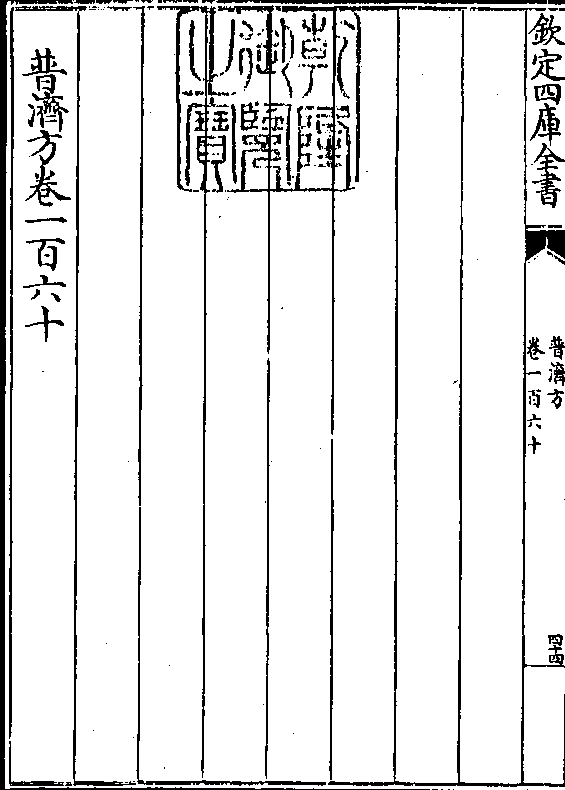 欽定四庫全書
普濟方
卷一百六十
四十四
乾隆御覽之寶
普濟方卷一百六十